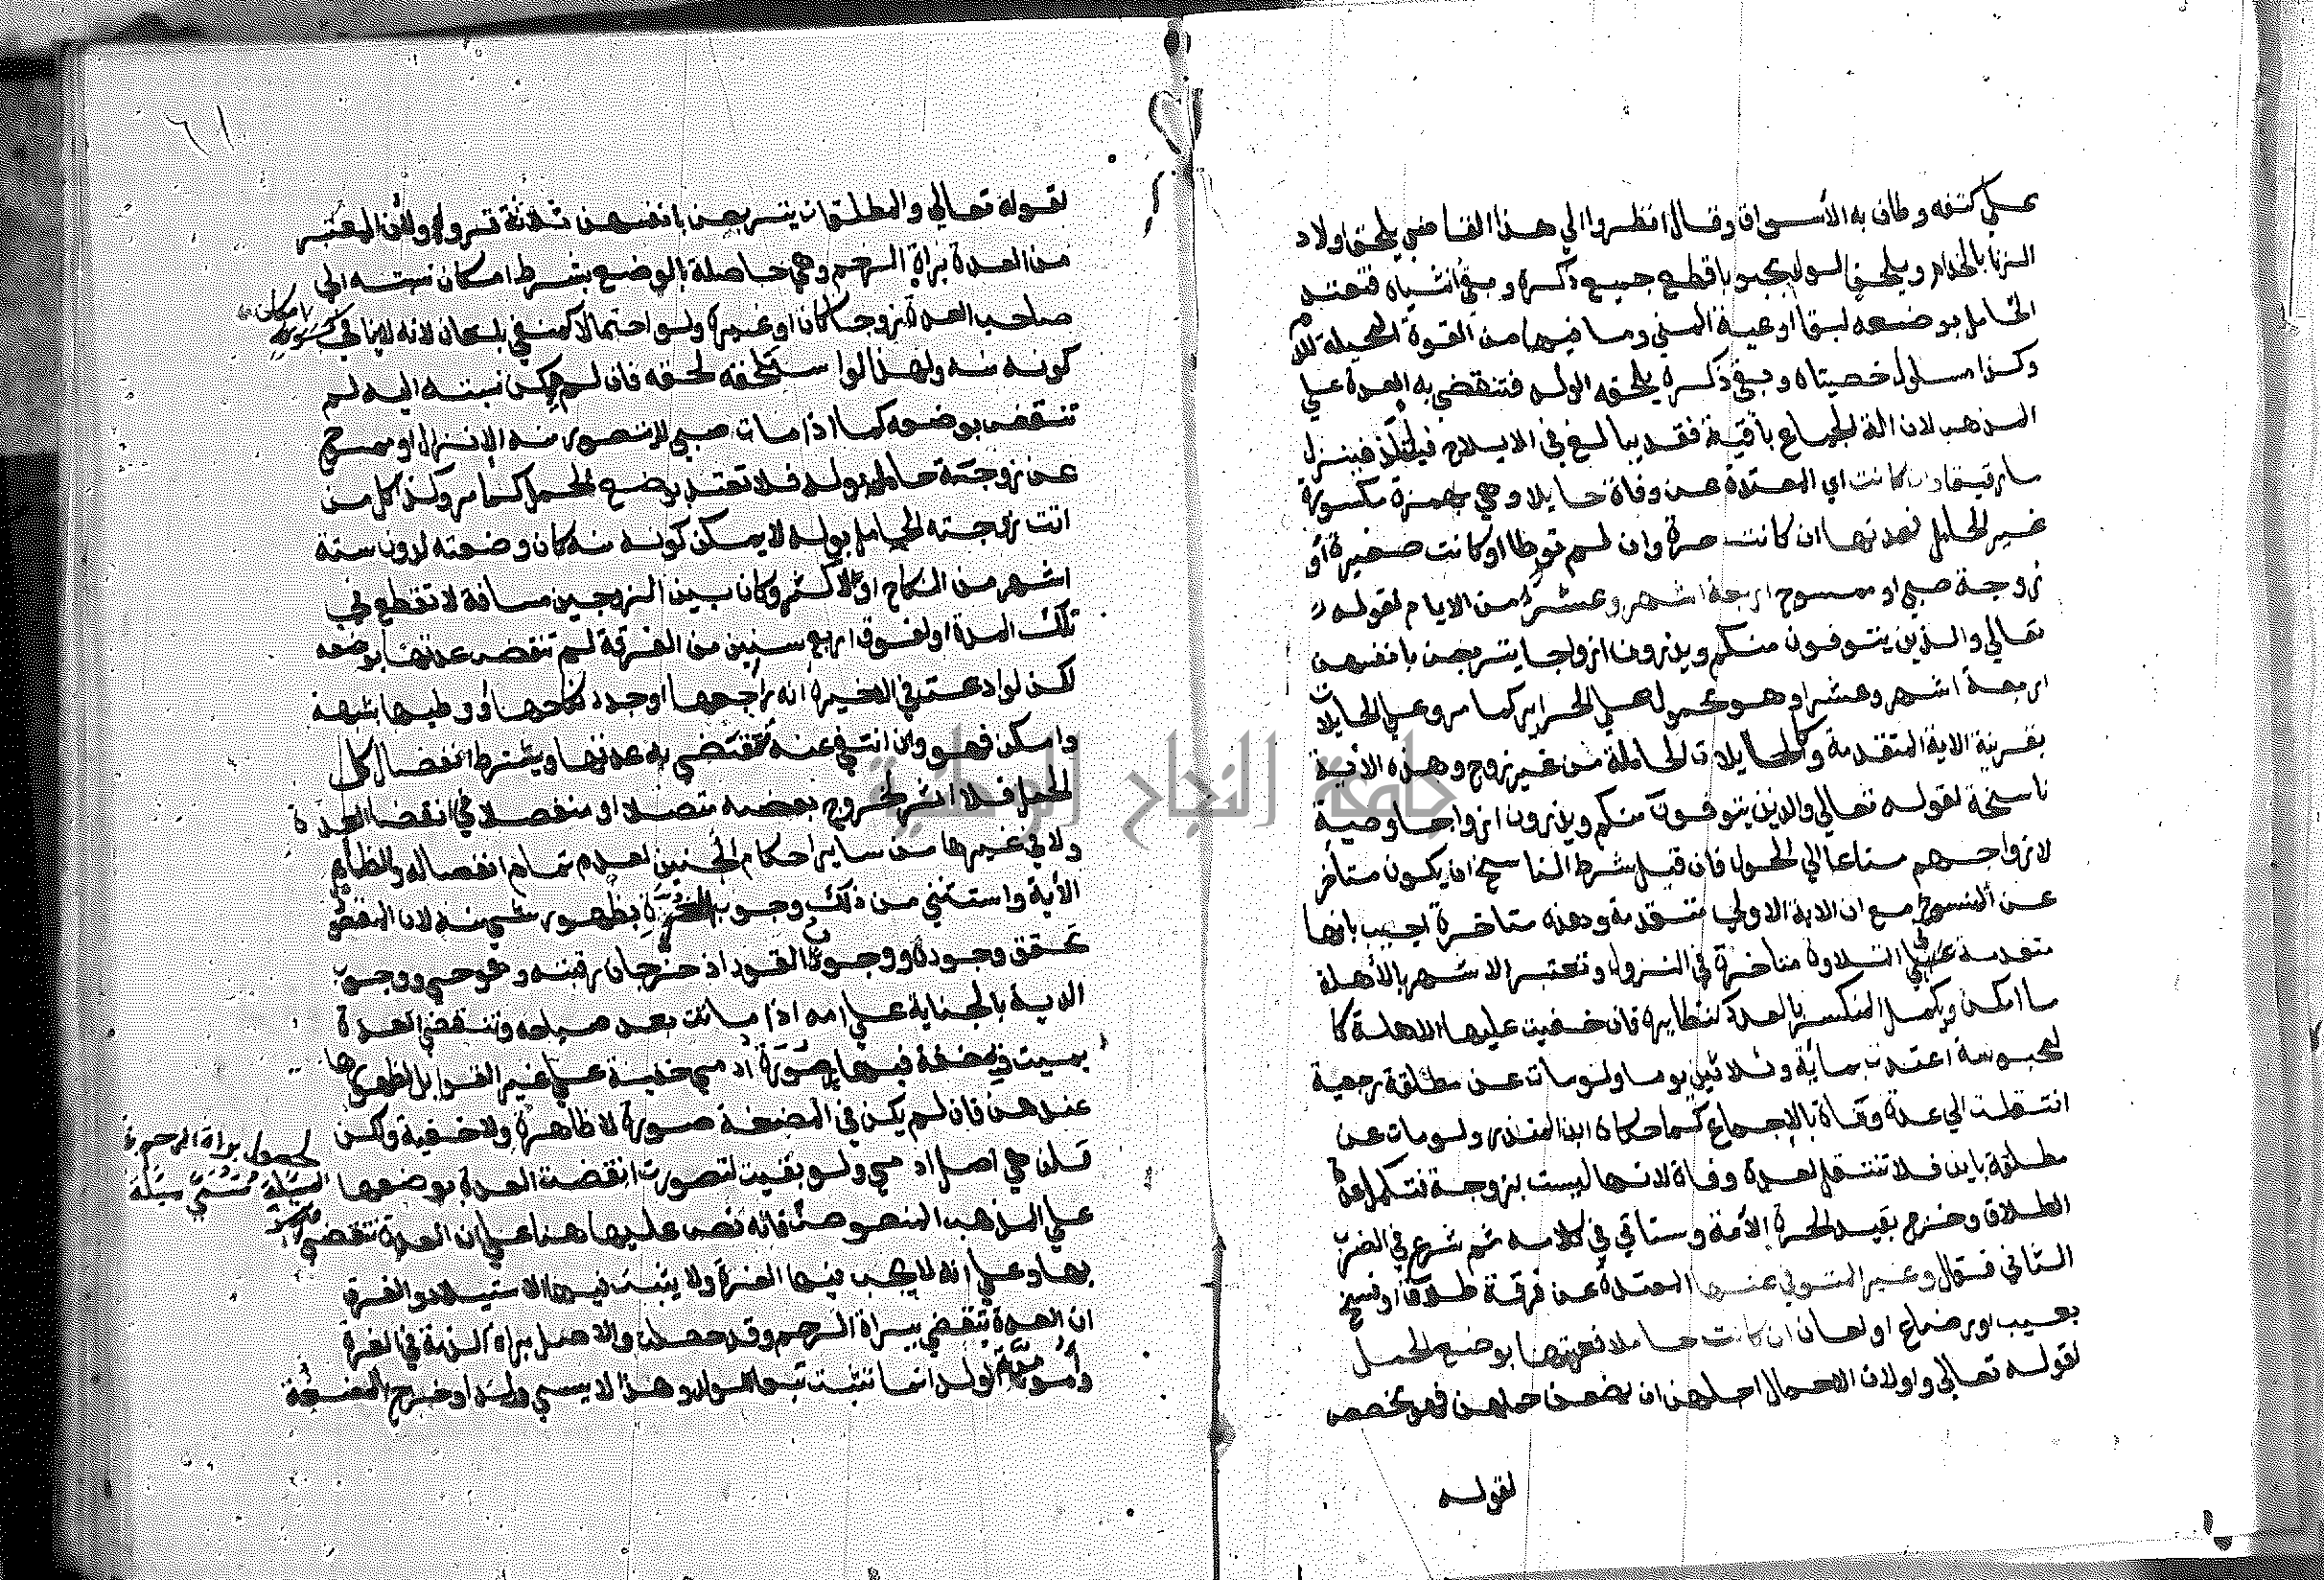 علي كتفه وطاف به الأسواق وقال انظروا الي هذا القاضي يلحق اولاد
الزنا بالخدام ويلحق الولد مجبوبا قطع جميع ذكره وبقي أنثياه فتعتد
الحامل بوضعه لبقا اوعية المني وما فيها من القوة المحيلة للدم
وكذا مسلول خصيتاه وبقي ذكره يلحقه الولد فتنقضي به العدة علي
المذهب لان الة الجماع باقية فقد يبالغ في الايلاج فيلتذ فينزل
ما رقيقا وان كانت اي المعتدة عن وفاة حايلا وهي بهمزة مكسورة
غير الحامل فعدتها ان كانت حرة وان لم توطا او كانت صغيرة أو
زوجة صبي او ممسوح اربعة اشهر وعشرة من الايام لقوله
تعالي والذين يتوفون منكم ويذرون ازواجا يتربصن بانفسهن
اربعة اشهر وعشرا وهو محمول علي الحراير كما مر وعلي الحايلات
بقرينة الاية المتقدمة وكالحايلات الحاملة من غير زوج وهذه الاية
ناسخة لقوله تعالي والذين يتوفون منكم ويذرون ازواجا وصية
لازواجهم متاعا الي الحول فان قيل شرط الناسخ ان يكون متأخر
عن المنسوخ مع ان الاية الاولي متقدمة وهذه متاخرة اجيب بانها
متقدمة في التلاوة متاخرة في النزول وتعتبر الاشهر بالأهلة
ما امكن ويكمل المنكسر بالعدد كنظايره فان خفيت عليها الاهلة كا
لمحبوسة اعتدت بماية وثلاثين يوما ولو مات عن مطلقة رجعية
انتقلت الي عدة وفاة بالاجماع كما حكاه ابن المنذر ولو مات عن
مطلقة باين فلا تنتقل لعدة وفاة لانها ليست بزوجة فتكمل عدة
الطلاق وخرج بقيد الحرة الأمة وستاتي في كلامه ثم شرع في الضرب
الثاني فقال وغير المتوفي عنها المعتدة عن فرقة طلاق أو فسخ
بعيب او رضاع او لعان ان كانت حاملا فعدتها بوضع الحمل
لقوله تعالي واولات الاحمال اجلهن ان يضعن حملهن فهو مخصص
لقوله
٦١
لقوله تعالي والمطلقات يتربصن بانفسهن ثلاثة قروء ولأن المعتبر
من العدة براة الرحم وهي حاصلة بالوضع بشرط امكان نسبته الي
صاحب العدة زوجا كان او غيره ولو احتمالا كمنفي بلعان لانه لاينافي
كونه منه ولهذا لو استلحقه لحقه فان لم يمكن نسبته اليه لم
تنقض بوضعه كما اذا مات صبي لا يتصور منه الانزال او ممسوح
عن زوجة حامل بولد فلا تعتد بوضع الحمل كما مر وكذا كل من
اتت زوجته الحامل بولد لا يمكن كونه منه كان وضعته لدون ستة
اشهر من النكاح او لأكثر وكان بين الزوجين مسافة لا تقطع في
تلك المدة او لفوق اربع سنين من الفرقة لم تنقض عدتها بوضعه
لكن لو ادعت في الاخيرة انه راجعها او جدد نكاحها أو وطيها بشبهة
وامكن فهو وان انتفي عنه تنقضي به عدتها ويشترط انفصال كل
الحمل فلا اثر لخروج بعضه متصلا او منفصلا في انقضا العدة
ولا في غيرها من ساير احكام الجنين لعدم تمام انفصاله ولظاهر
الأية واستثني من ذلك وجوب الغرة بظهور شي منه لان المقصود
تحقق وجوده ووجوب القود اذ حز جان رقبته وهو حي ووجوب
الدية بالجناية علي امه اذا ماتت بعد صياحه وتنقضي العدة
بميت ومضغة فيها صورة ادمي خفية علي غير القوابل لظهورها
عندهن فان لم يكن في المضغة صورة لا ظاهرة ولا خفية ولكن
قلن هي اصل ادمي ولو بقيت لتصورت انقضت العدة بوضعها
لحصول براة الرحم
المسيلة تسمي مسيلة
علي المذهب المنصوص فانه نص عليها هنا علي ان العدة تنقضي
بها وعلي انه لا يجب فيها الغرة ولا يثبت فيها الاستيلاد والفرق
ان العدة تنقضي ببراة الرحم وقد حصلت والاصل براة الذمة في الغرة
وأمومة الولد انما تثبت تبعا للولد وهذا لا يسمي ولدا وخرج بالمضغة